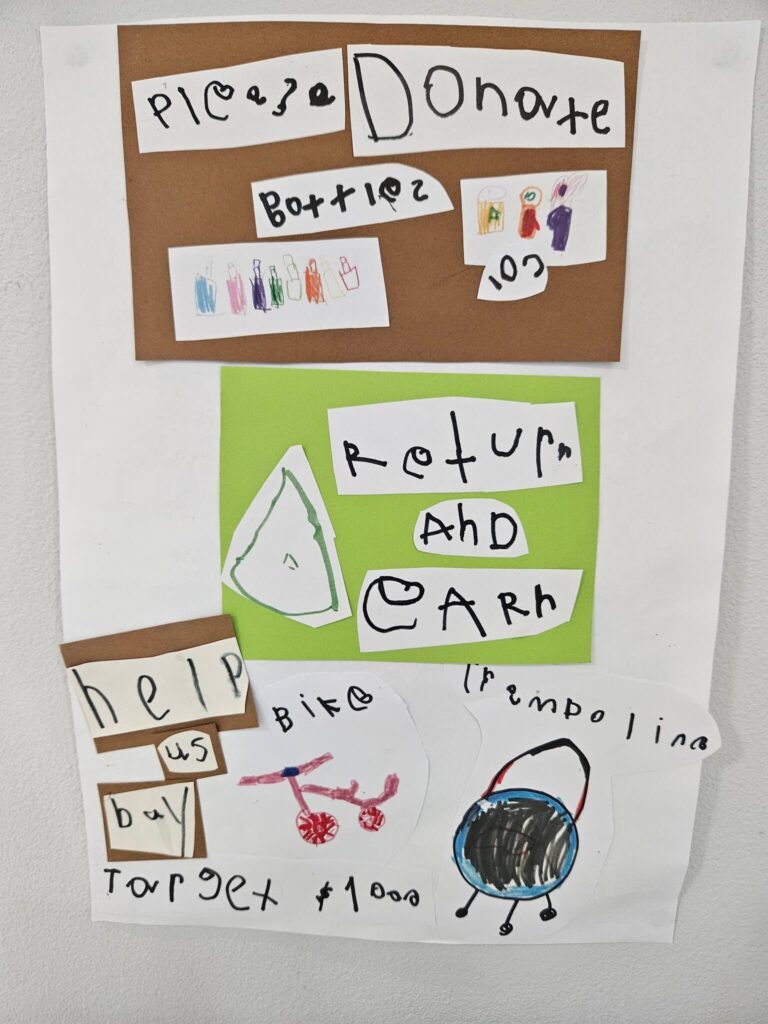 Please Donate
Bottles
A
10c
Return
AnD
eARn
help
us
buy
Bike
Trampoline
Target $1000